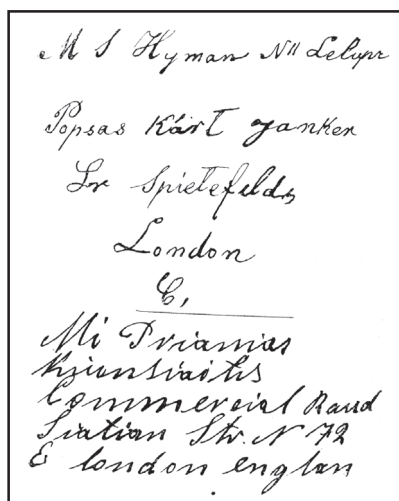 M S Hyman N11 Lelupr
Popsas Kárt Janken
Lr Spietefields
London
E,
Mi Prianias
Commercial Raud
Siatian Str. N 72
E london englan